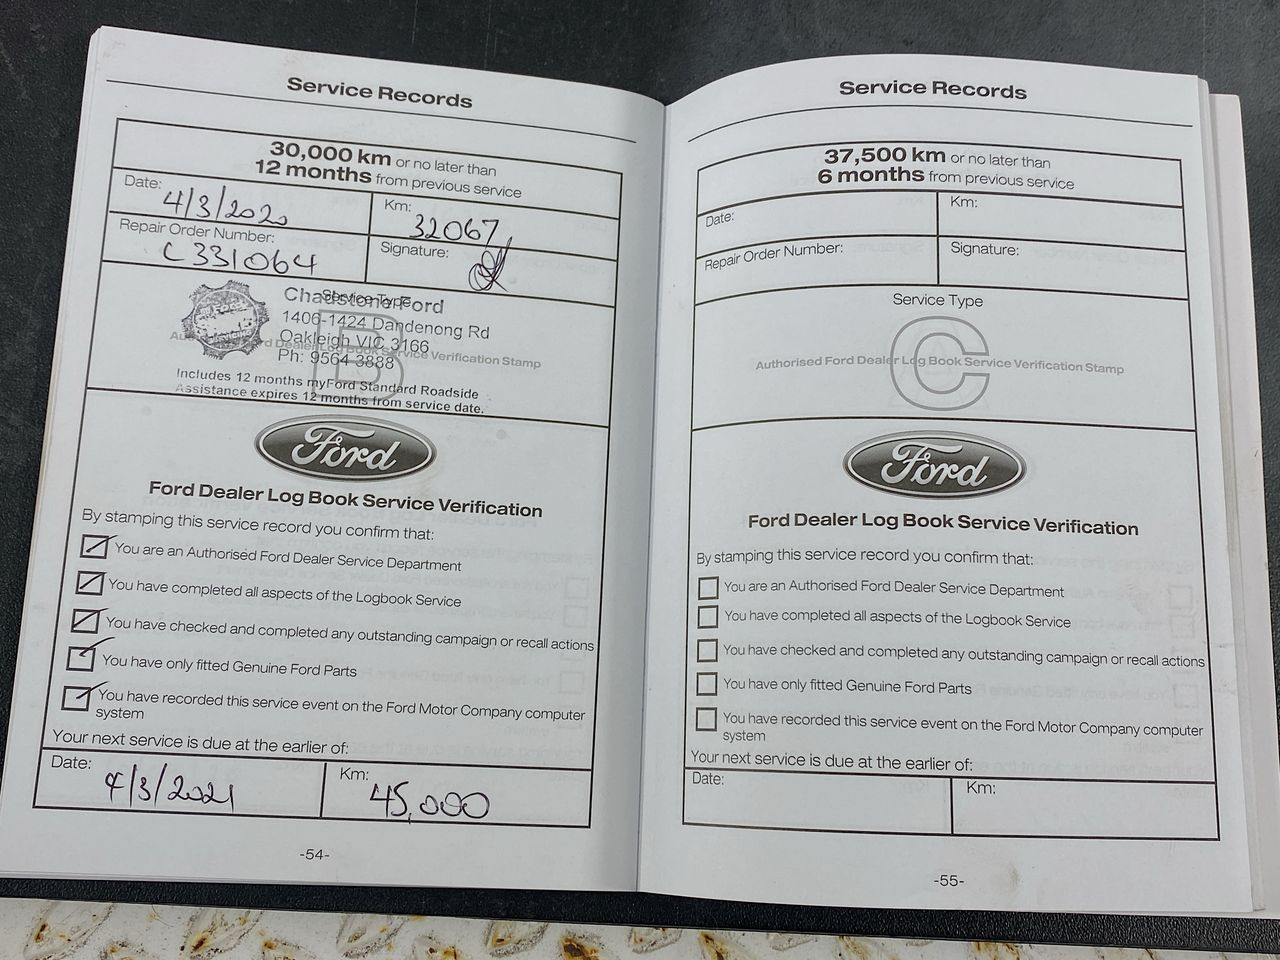 Service Records
30,000 km or no later than
12 months from previous service
Date: 4/3/2020
Km: 32067
Repair Order Number: C331064
Signature:
Service Type
B
Chadstone Ford
1406-1424 Dandenong Rd
Oakleigh VIC 3166
Ph: 9564 3888
Authorised Ford Dealer Log Book Service Verification Stamp
Includes 12 months myFord Standard Roadside
Assistance expires 12 months from service date.
Ford
Ford Dealer Log Book Service Verification
By stamping this service record you confirm that:
You are an Authorised Ford Dealer Service Department
You have completed all aspects of the Logbook Service
You have checked and completed any outstanding campaign or recall actions
You have only fitted Genuine Ford Parts
You have recorded this service event on the Ford Motor Company computer
system
Your next service is due at the earlier of:
Date: 4/3/2021
Km: 45,000
-54-
Service Records
37,500 km or no later than
6 months from previous service
Date:
Km:
Repair Order Number:
Signature:
Service Type
C
Authorised Ford Dealer Log Book Service Verification Stamp
Ford
Ford Dealer Log Book Service Verification
By stamping this service record you confirm that:
You are an Authorised Ford Dealer Service Department
You have completed all aspects of the Logbook Service
You have checked and completed any outstanding campaign or recall actions
You have only fitted Genuine Ford Parts
You have recorded this service event on the Ford Motor Company computer
system
Your next service is due at the earlier of:
Date:
Km:
-55-